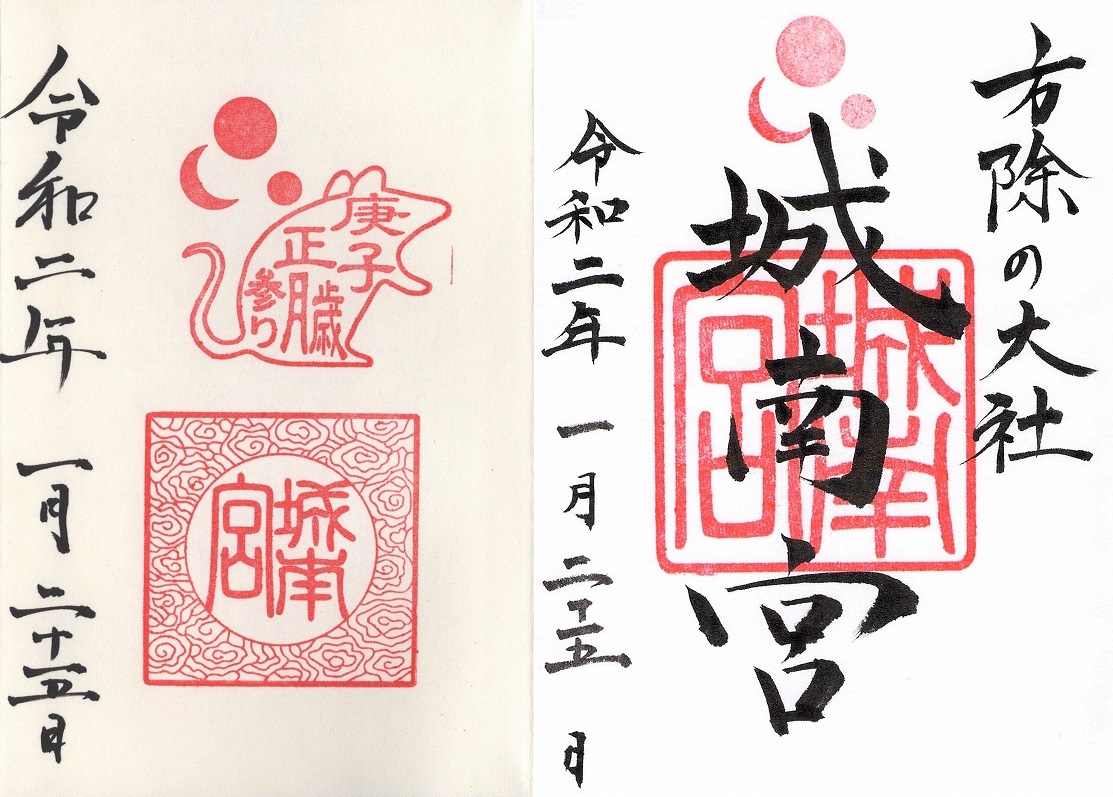 方除の大社
城南宮
城南
宮
令和二年 一月 二十五 日
庚子歳
正月
参り
城南
宮
令和二年 一月 二十五日